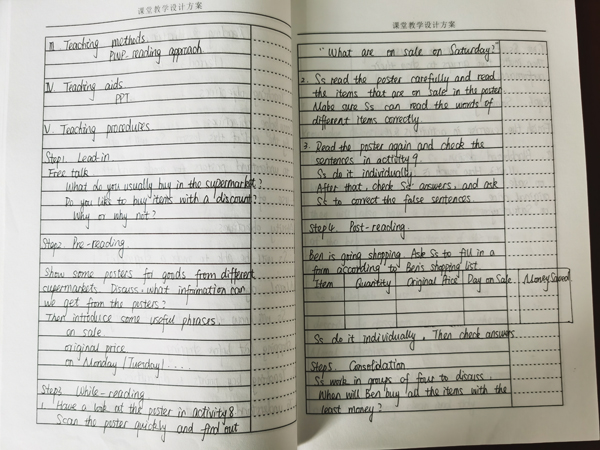 课堂教学设计方案
III. Teaching methods.
PWP reading approach
IV. Teaching aids
PPT
V. Teaching procedures
Step1. Lead-in
Free talk
What do you usually buy in the supermarket?
Do you like to buy items with a discount?
Why or why not?
Step2. Pre-reading
Show some posters for goods from different
supermarkets. Discuss what information can
we get from the posters?
Then introduce some useful phrases.
on sale
original price
on Monday / Tuesday / .....
Step3. While-reading
1. Have a look at the poster in activity 8
Scan the poster quickly and find out
课堂教学设计方案
"What are on sale on Saturday?"
2. Ss read the poster carefully and read
the items that are on sale in the poster
Make sure Ss can read the words of
different items correctly.
3. Read the poster again and check the
sentences in activity 9.
Ss do it individually
After that, check Ss' answers, and ask
Ss to correct the false sentences.
Step4. Post-reading.
Ben is going shopping. Ask Ss to fill in a
form according to Ben's shopping list.
Item Quantity Original Price Day on Sale Money Saved
Ss do it individually. Then check answers
Step5. Consolidation
Ss work in groups of four to discuss.
When will Ben buy all the items with the
least money?